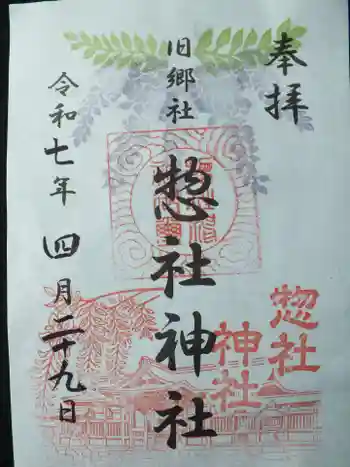 奉拝
旧郷社
惣社神社
令和七年四月二十九日
惣社
神社